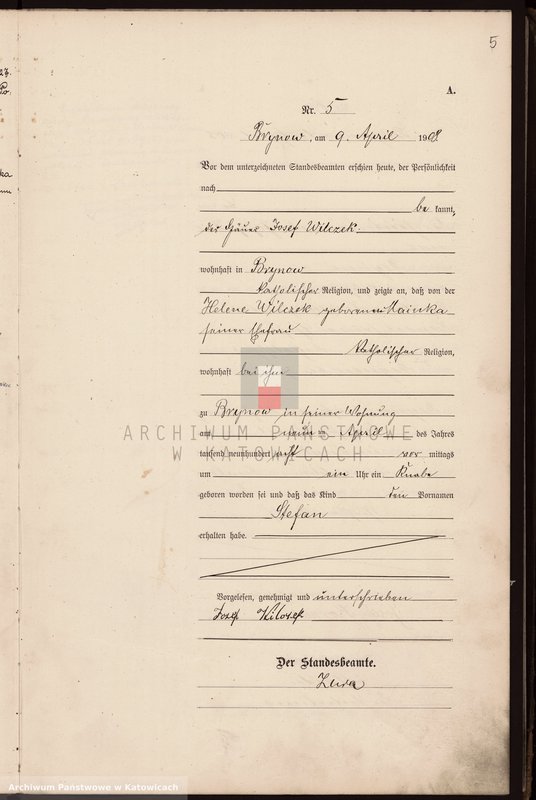 5
A.
Nr. 5
Brynow, am 9. April 1908
Vor dem unterzeichneten Standesbeamten erschien heute, der Persönlichkeit
nach
be kannt,
der Häuer Josef Wilczek
wohnhaft in Brynow
katholischer Religion, und zeigte an, daß von der
Helene Wilczek geborenen Mainka
seiner Ehefrau
katholischer Religion,
wohnhaft bei ihm
zu Brynow in seiner Wohnung
am neunten April des Jahres
tausend neunhundert acht vor mittags
um ein Uhr ein Knabe
geboren worden sei und daß das Kind den Vornamen
Stefan
erhalten habe.
Vorgelesen, genehmigt und unterschrieben
Josef Wilczek
Der Standesbeamte.
ARCHIWUM PAŃSTWOWE
W KATOWICACH
Archiwum Państwowe w Katowicach